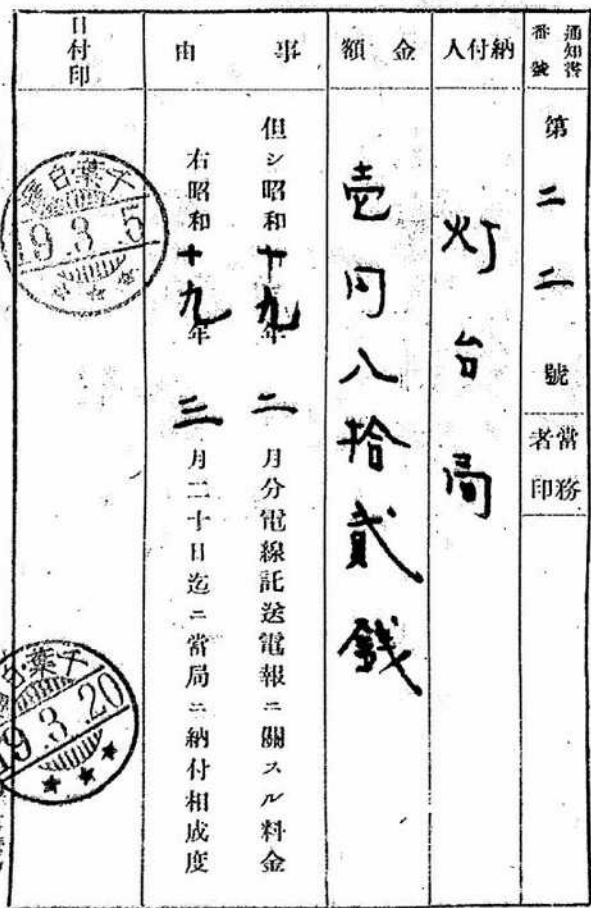 通知書番號
第二二號
當務者印
納付人
灯台局
金額
壱円八拾貳銭
事由
但シ昭和十九年二月分電線託送電報ニ關スル料金
右昭和十九年三月二十日迄ニ當局ニ納付相成度
日付印
千葉・白
19.3.5
千葉・白
19.3.20